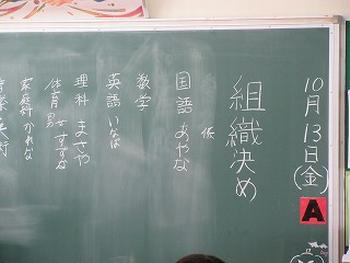 10月13日(金)
A
組織決め
係
国語 あやな
数学
英語 いなば
理科 まさや
体育 男 女 すずね
家庭科 かれな